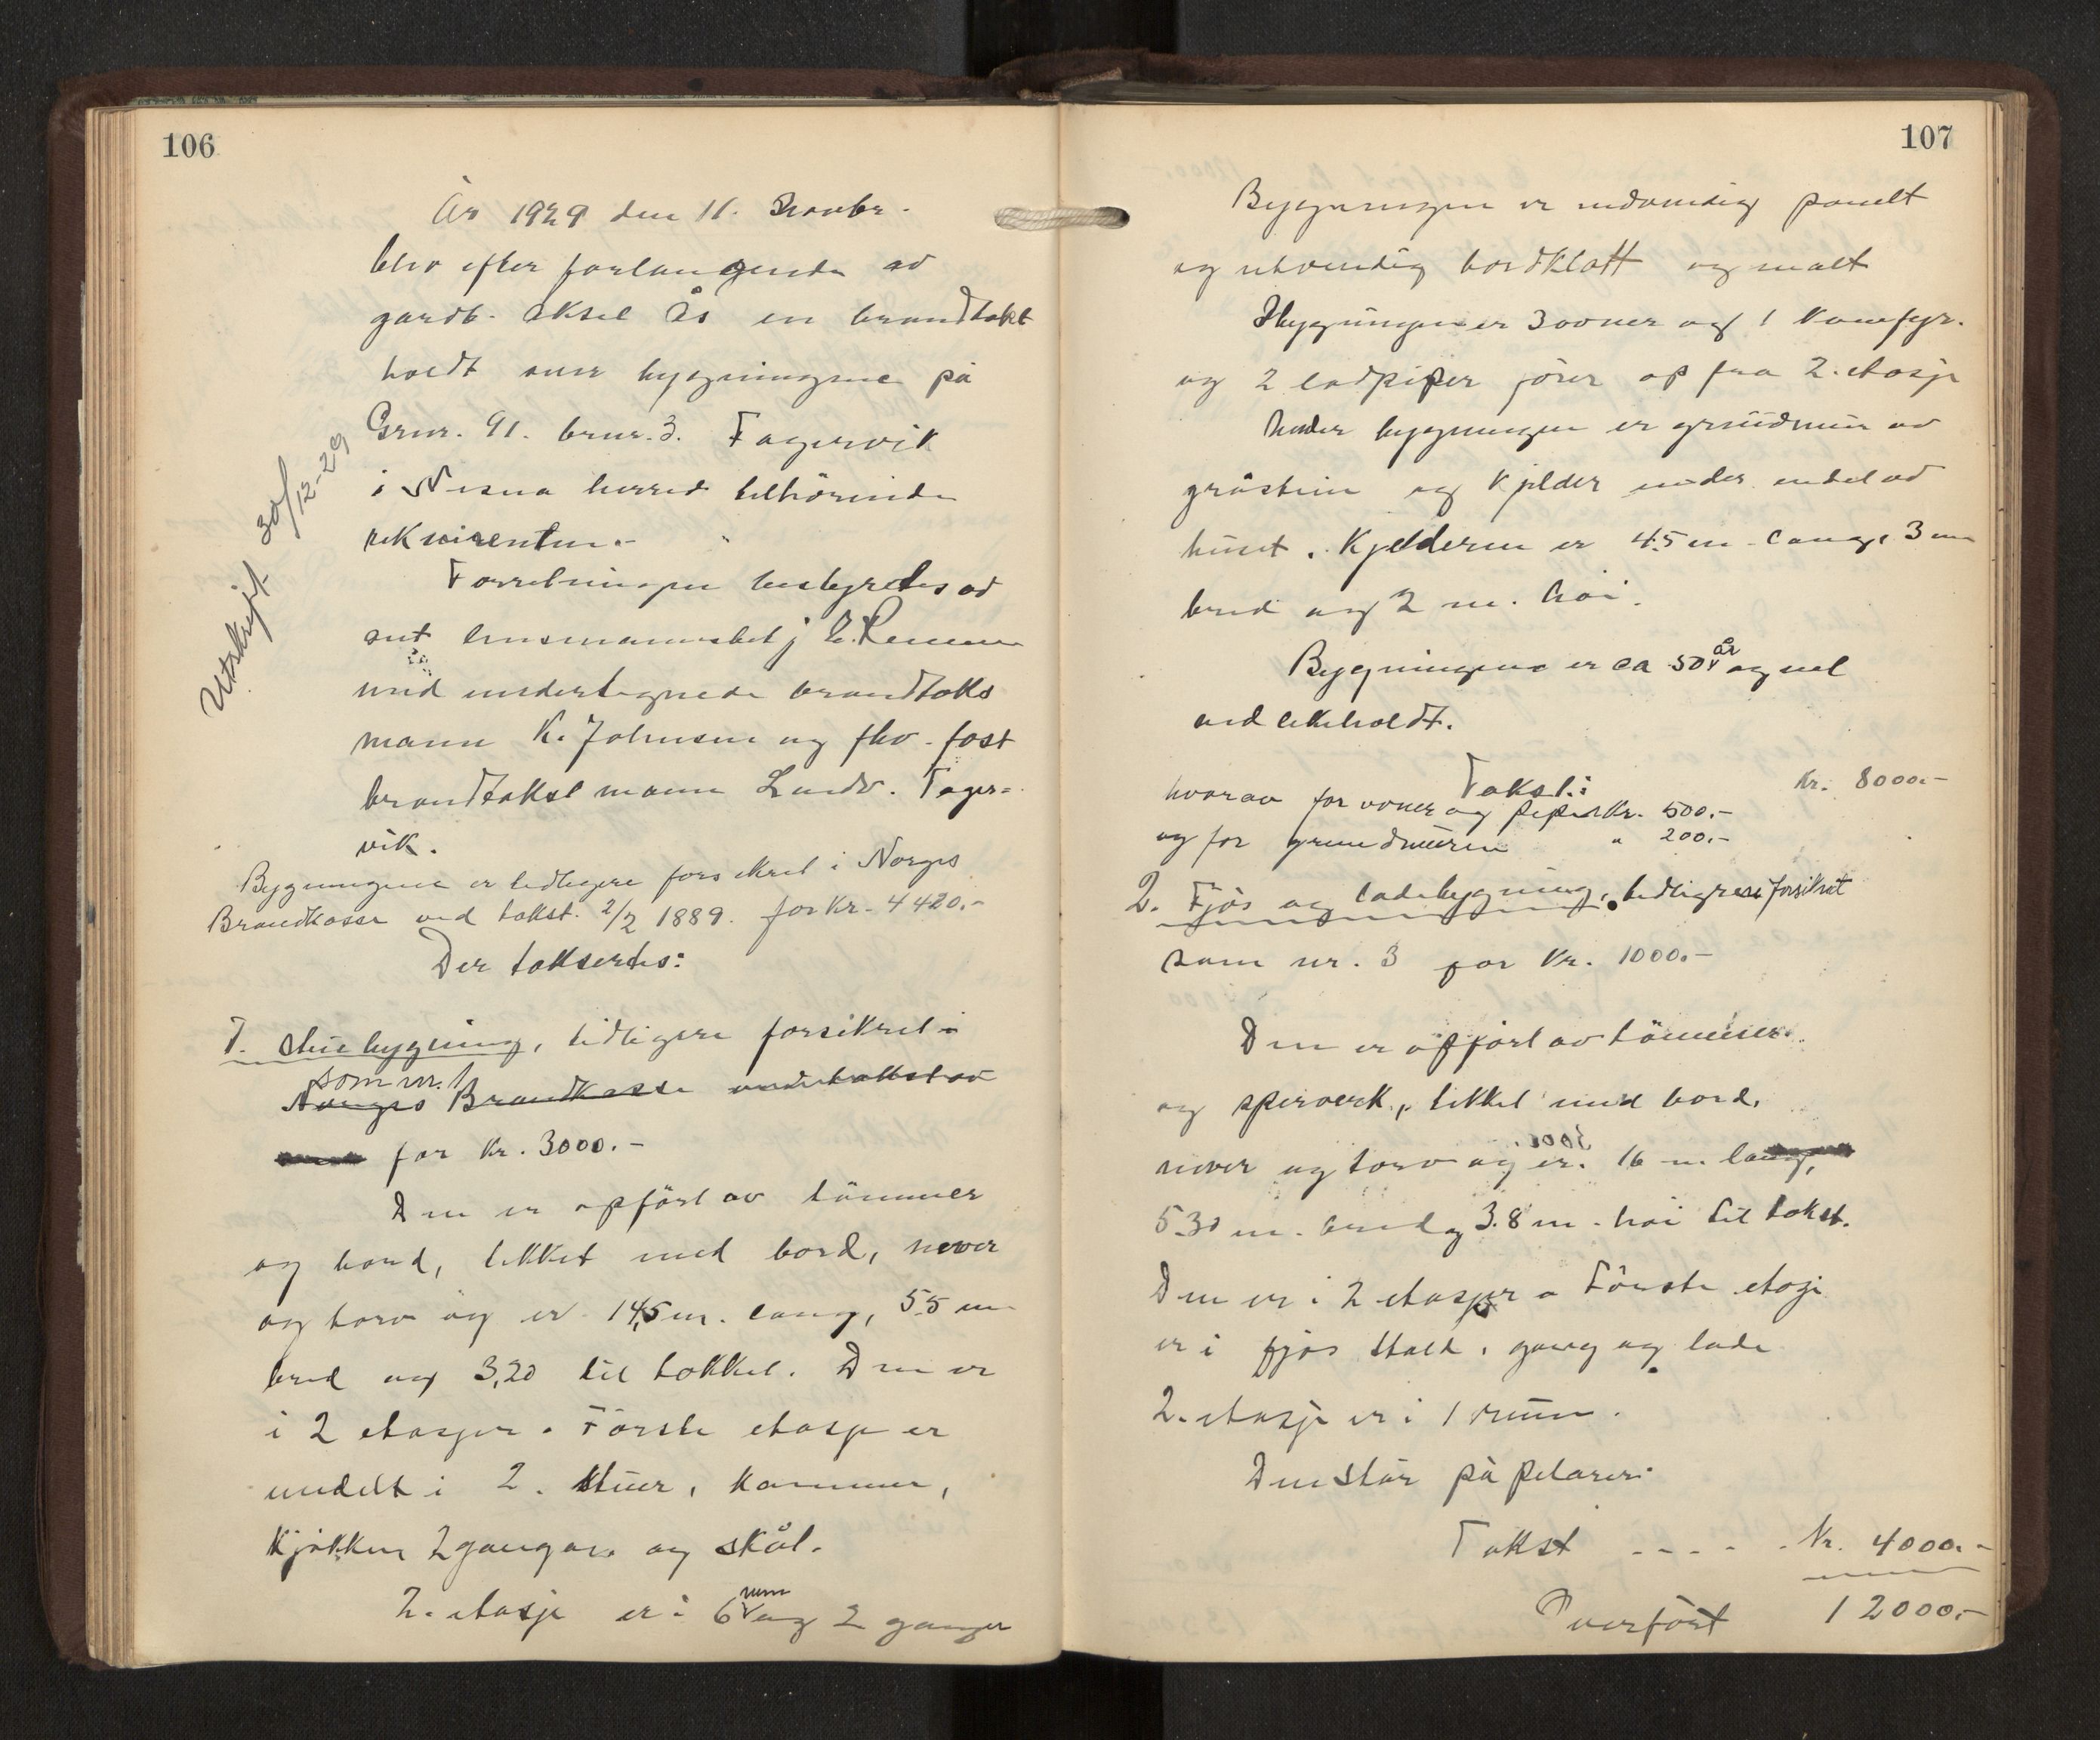 106
År 1929 den 11. Novbr.
blev efter forlangende av
gardb. Aksel Ås en brandtakst
holdt over bygningene på
Grnr. 91. brnr. 3. Fagervik
i Nesna herred tilhörende
rekvirenten.-
Forretningen bestyrtes av
ant lensmannsbetj
med undertegnede brandtaks
mann K. Johnsen og fhv. fast
brandtakst mann Ludv. Fager=
vik.
Utskrift 30/12-29
Bygningene er tidligere forsikret i Norges
Brandkasse ved takst. 2/2 1889. for Kr. 4420.-
Der taksertes:
1. Stuebygning, tidligere forsikret i
som nr. 1
Norges Brandkasse
for Kr. 3000.-
Den er opfört av tömmer
og bord, tekket med bord, never
og torv og er 14,5 m. lang, 5.5 m
bred og 3,20 til takket. Den er
i 2 etasjer. Förste etasje er
indelt i 2. stuer, kammer,
Kjökken 2 ganger og skål.
2. etasje er i 6 rum og 2 ganger
107
Bygningen er indvendig panelt
og utvendig bordklätt og malt
I bygningen er 3 ovner og 1 komfyr.
og 2 ladpiper förer op fra 2. etasje
Under bygningen er grundmur av
gråstein og Kjelder under endel av
huset. Kjelderen er 4.5 m. lang, 3 m
bred og 2 m. høi.
Bygningene er ca 50 år og vel
vedlikeholdt.
Takst: Kr. 8000.-
hvorav for ovner og piper Kr. 500.-
og for grundmuren " 200.-
2. Fjös og ladebygning, tidligere forsikret
som nr. 3 for Kr. 1000.-
Den er opfört av tömmer
og sperverk, tekket med bord,
never og torv og er. 16 m. lang,
5.30 m. bred og 3.8 m. høi til takst.
Den er i 2 etasjer. Förste etasje
er i fjös stald, gang og lade
2. etasje er i 1 rum.
Den står på pelarer.
Takst - - - - - Kr. 4000.-
Overfört 12000.-